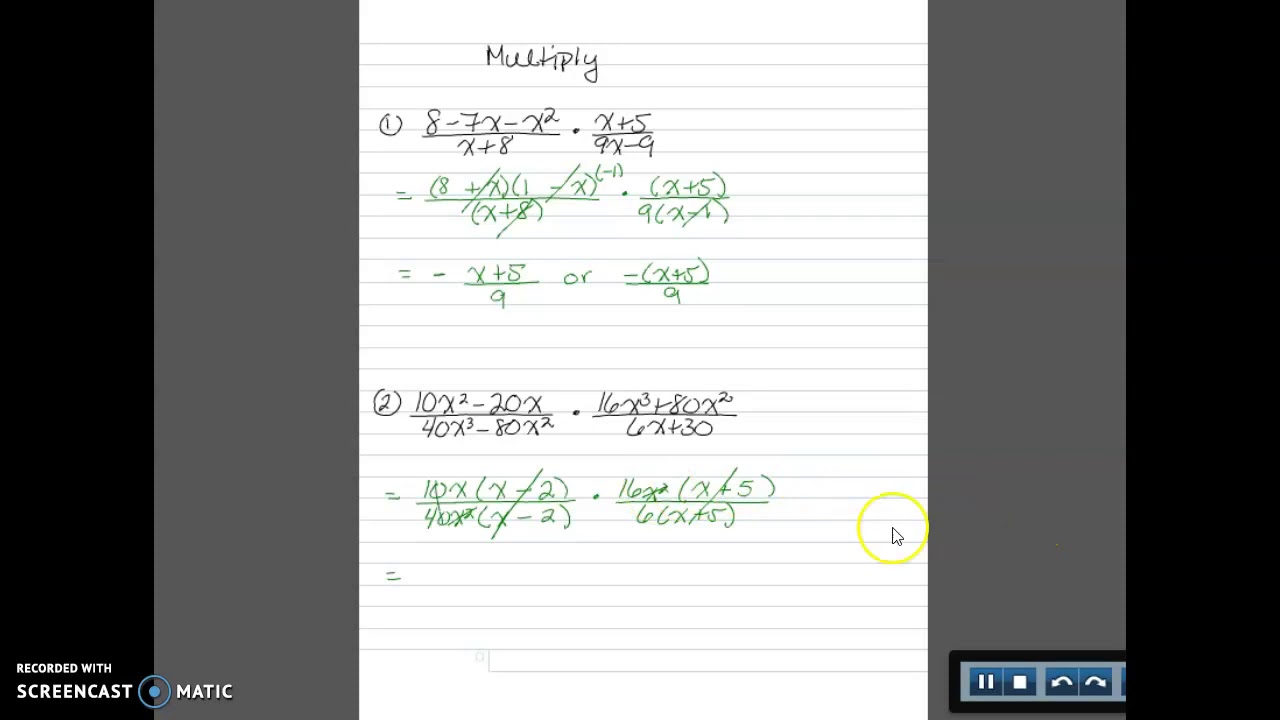 Multiply
① (8-7x-x²)/(x+8) · (x+5)/(9x-9)
= (8+x)(1-x)^(-1)/(x+8) · (x+5)/9(x-1)
= - (x+5)/9 or -(x+5)/9
② (10x²-20x)/(40x³-80x²) · (16x³+80x²)/(6x+30)
= 10x(x-2)/40x²(x-2) · 16x²(x+5)/6(x+5)
=
RECORDED WITH
SCREENCAST MATIC